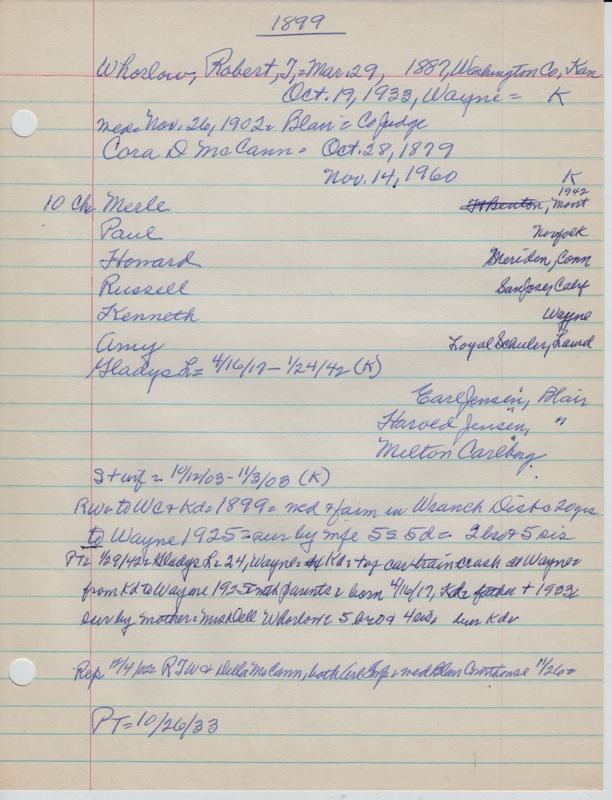 1899
Whorlow, Robert, T, = Mar. 29, 1887, Washington Co, Kan
Oct. 19, 1933, Wayne = K
med = Nov. 26, 1902 = Blair = Co Judge
Cora D McCann = Oct. 28, 1879
Nov. 14, 1960 K
10 Ch Merle Ft Benton, 1942 Mont
Paul Norfolk
Howard Meriden, Conn
Russell San Jose, Calif
Kenneth Wayne
Amy Loyal Schuler, Laurel
Gladys L = 4/16/17 - 1/24/42 (K)
Earl Jensen, Blair
Harold Jensen, "
Milton Carlberg "
S + inf = 10/12/03 - 11/3/03 (K)
RW = to WC + Kd = 1899 = med + farm in Wranch Dist = 20 yrs
to Wayne 1925 = sur by wife 5 S 5 d = 2 bro + 5 sis
PT = 1/29/42 = Gladys L = 24, Wayne = Kd = car train crash at Wayne =
from Kd to Wayne 1925 with parents = born 4/16/17, Kd = father + 1933
sur by mother = Mrs Dell Whorlow = 5 bro + 4 sis, bur Kd =
Rep 12/4/02 = R T W + Della McCann, both = med Blair Courthouse 11/26 =
PT = 10/26/33